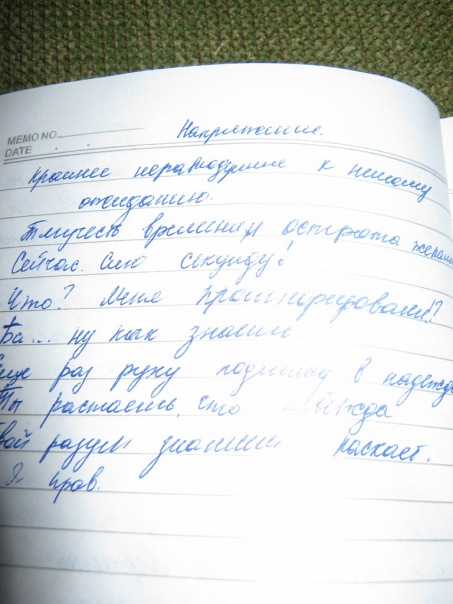 MEMO NO.
DATE . .
Напряжение.
Крайнее неравнодушие к немому
ожиданию.
Тягучесть времени и острота желани
Сейчас. Сию секунду!
Что? Меня проигнорировали!?
Ба... ну как знаешь.
раз руку подниму в надежде
Ты растаешь, что
вой разум знанием ласкает.
Я прав.